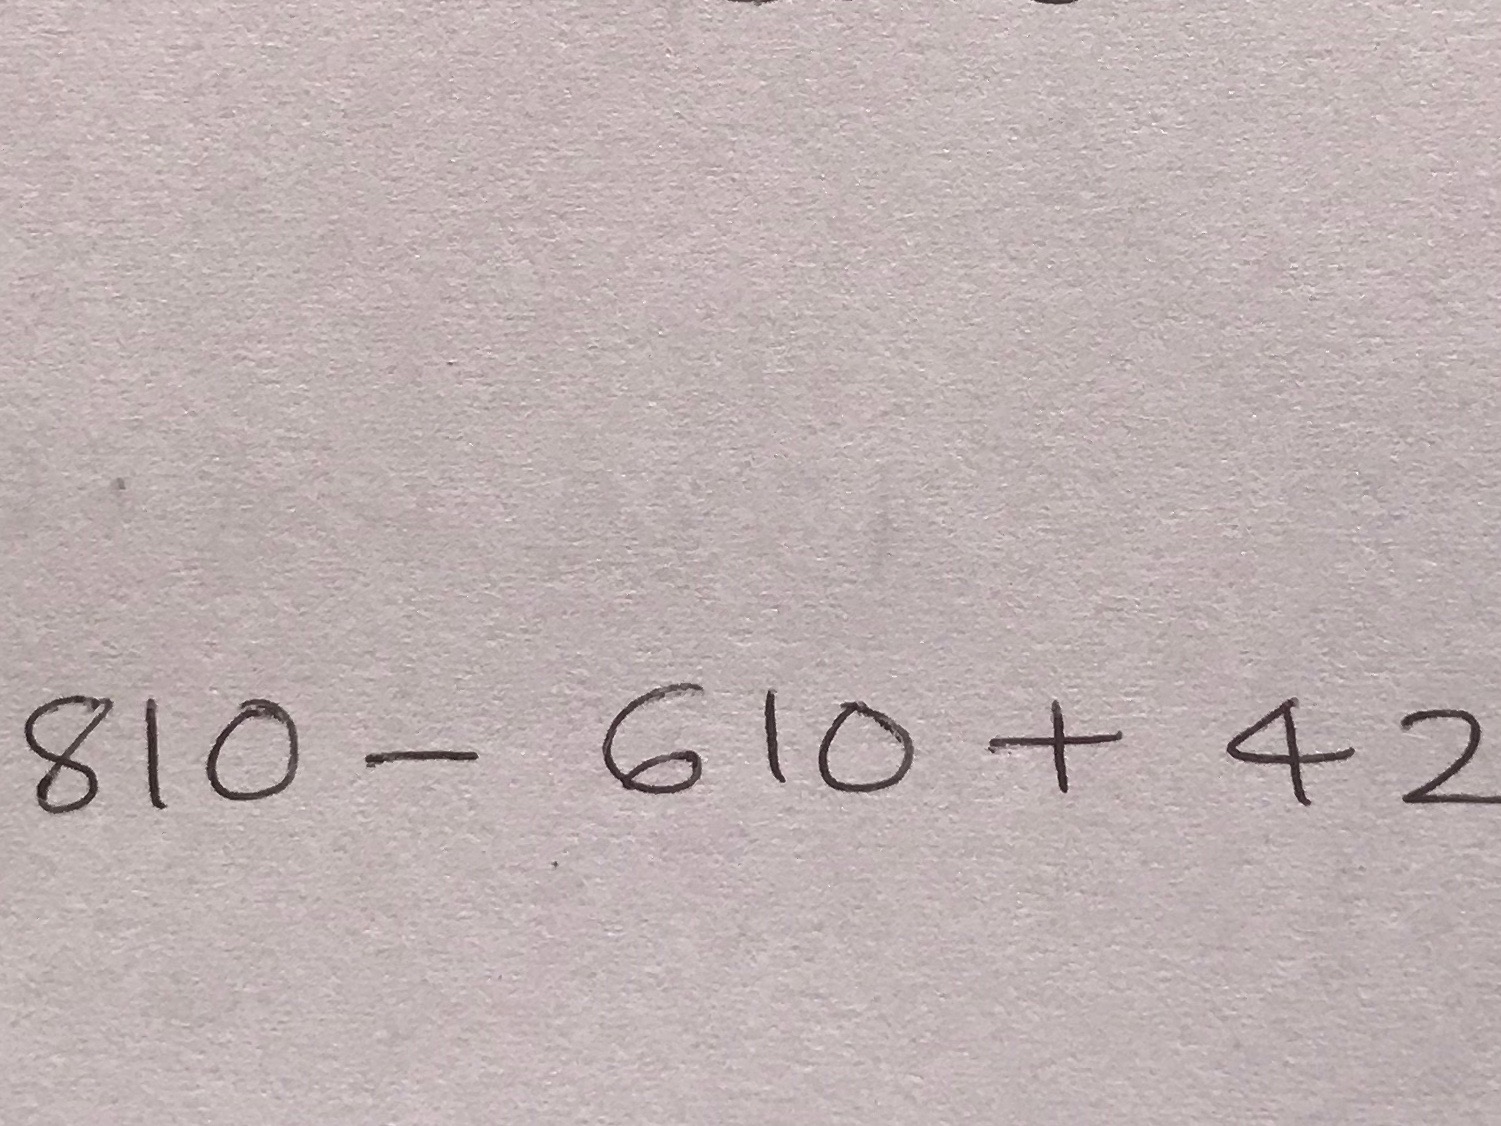 810 - 610 + 42